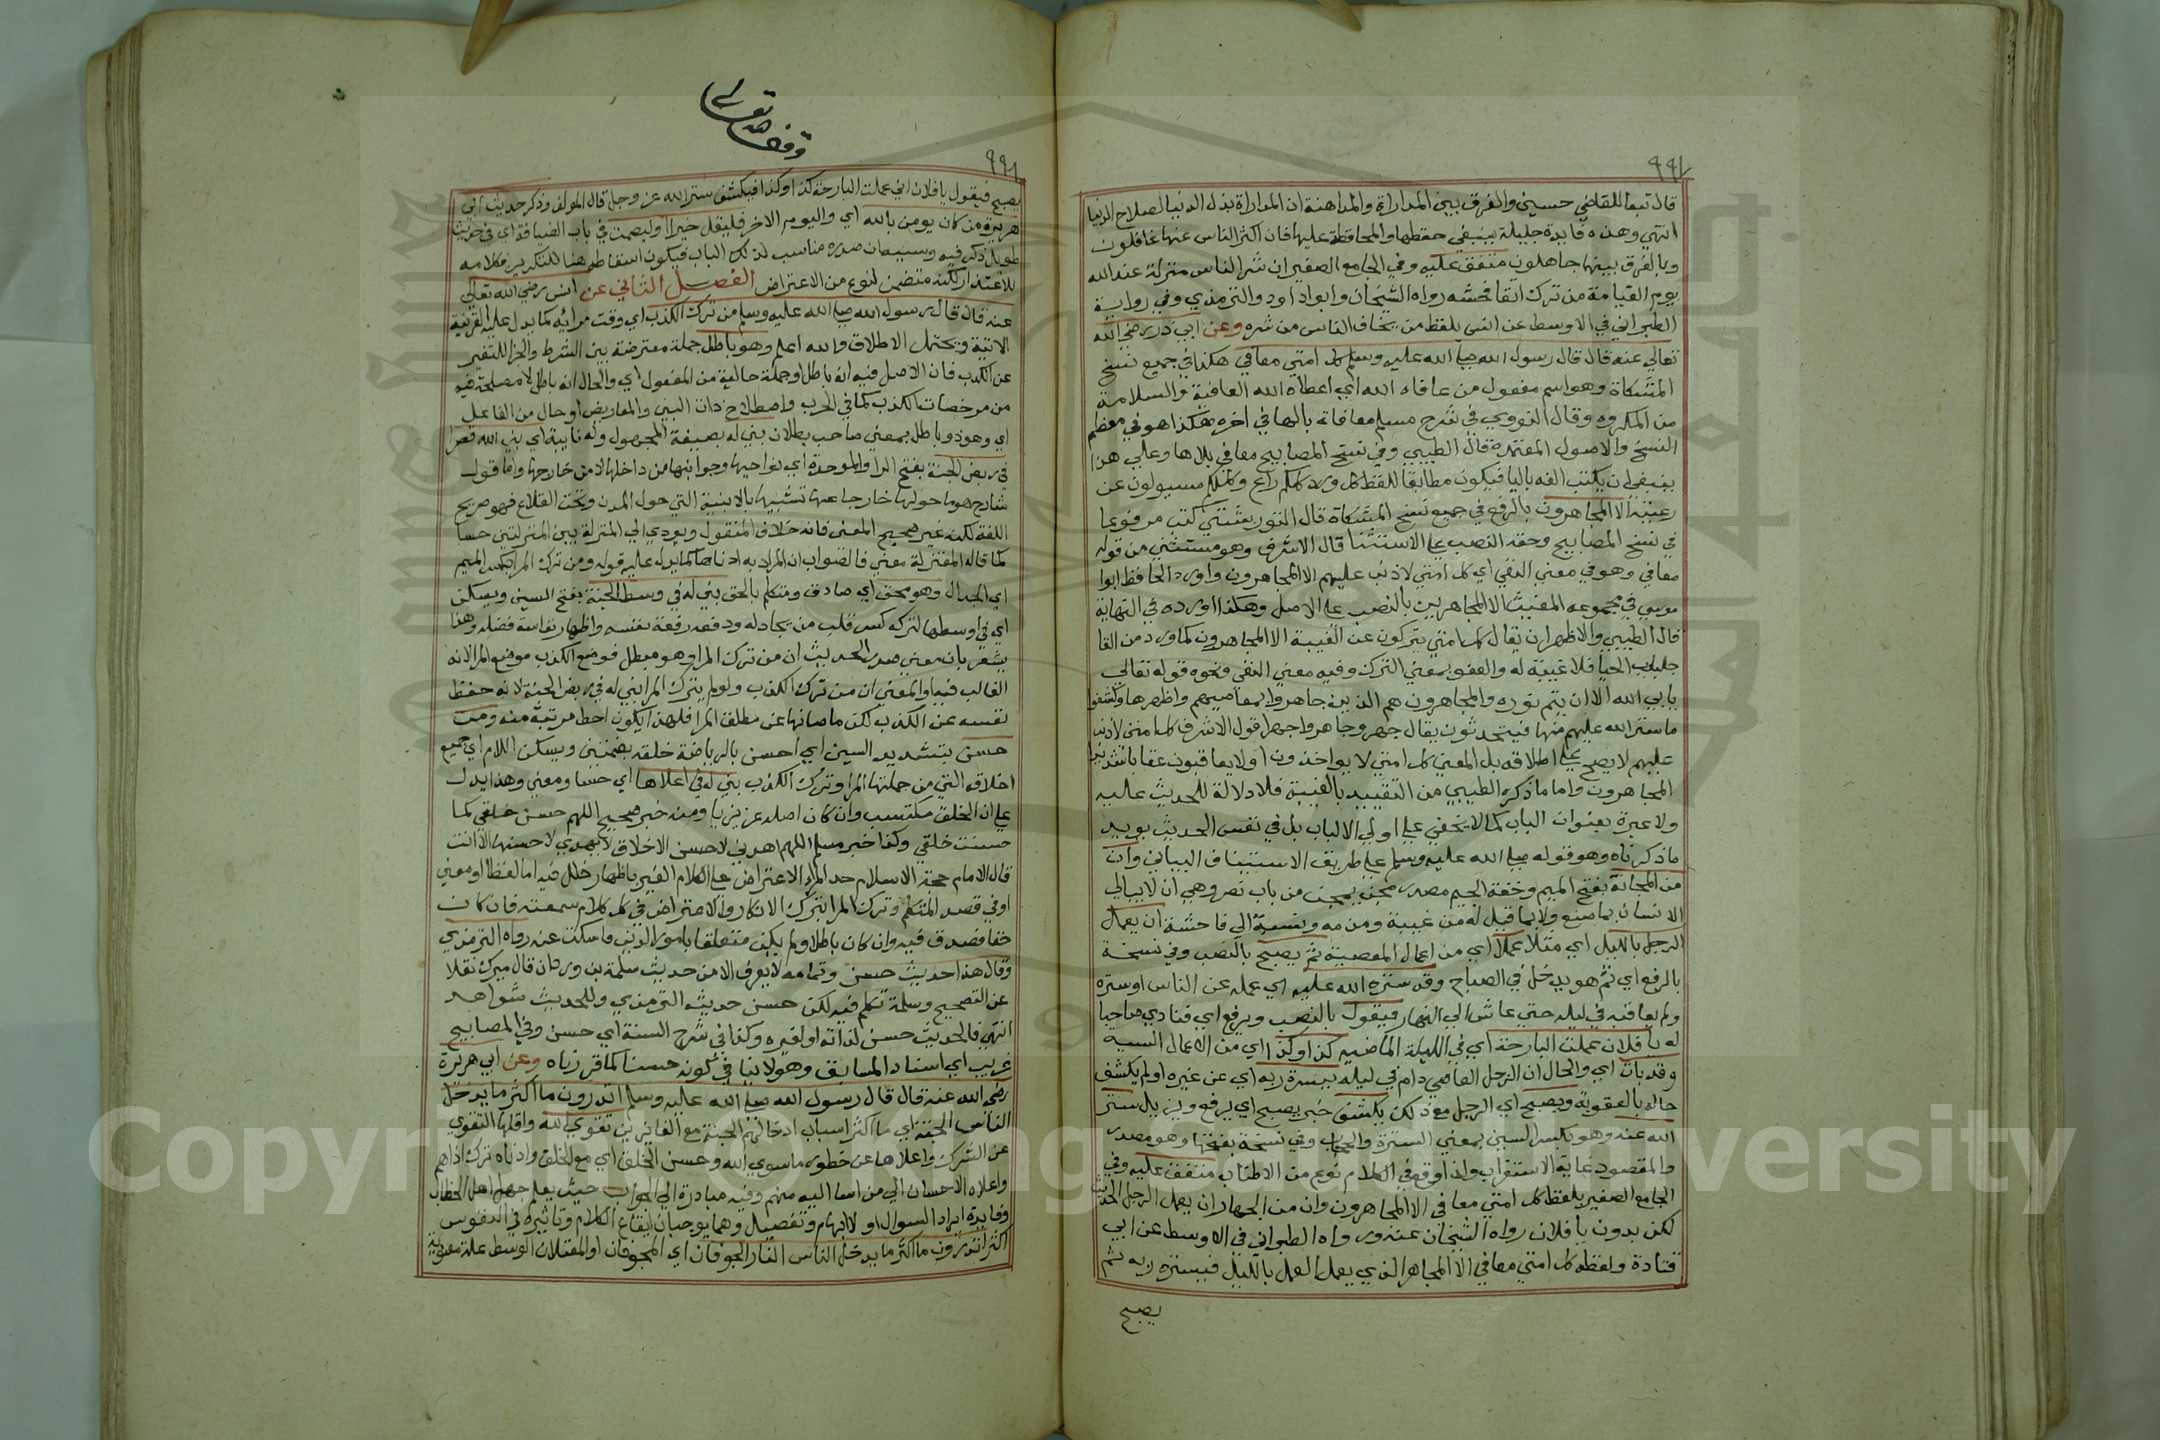 قال تبعا للقاضي حسين والفرق بين المداراة والمداهنة ان المداراة بذل الدنيا لصلاح الدنيا
انتهي وهذه فايدة جليلة ينبغي حفظها والمحافظة عليها فان اكثر الناس عنها غافلون
وبالفرق بينهما جاهلون متفق عليه وفي الجامع الصغير ان شر الناس منزلة عند الله
يوم القيامة من ترك اتقا فحشه رواه الشيخان وابو داود والترمذي وفي رواية
الطبراني في الاوسط عن انس بلفظ من يخاف الناس من شره وعن ابي رضي الله
تعالي عنه قال قال رسول الله صلي الله عليه وسلم كل امتي معافي هكذا في جميع نسخ
المشكاة وهو اسم مفعول من عافاه الله اي اعطاه الله العافية والسلامة
من المكروه وقال النووي في شرح مسلم معافاة بالها في اخره هكذا هو في معظم
النسخ والاصول المعتمدة قال الطيبي وفي نسخ المصابيح معافي بلا ها وعلي هذا
ينبغي ان يكتب الفه باليا فيكون مطابقا للفظ كل ورد كلكم راع وكلكم مسيولون عن
رعيته الا المجاهرون بالرفع في جميع نسخ المشكاة قال التوربشتي كتب مرفوعا
في نسخ المصابيح وحقه النصب علي الاستثنا قال الاشرف وهو مستثني من قوله
معافي وهو في معني النفي اي كل امتي لا ذنب عليهم الا المجاهرون واورد الحافظ ابو
موسي في مجموعه المغيث الا المجاهرين بالنصب علي الاصل وهكذا اورده في النهاية
قال الطيبي والاظهر ان يقال كل امتي يتركون عن الغيبة الا المجاهرون كما ورد من القا
جلباب الحيا فلا غيبة له والعفو بمعني الترك وفيه معني النفي ونحوه قوله تعالي
يابي الله الا ان يتم نوره والمجاهرون هم الذين جاهروا بمعاصيهم واظهرها وكشفوا
ما ستر الله عليهم منها فيتحدثون يقال جهر وجاهر واجهر قول الاشرف كل امتي لا ذنب
عليهم لا يصح علي اطلاقه بل المعني كل امتي لا يواخذون او لا يعاقبون عقابا شديدا
المجاهرون واما ما ذكره الطيبي من التقييد بالغيبة فلا دلالة للحديث عليه
ولا عبرة بعنوان الباب كما لا يخفي علي اولي الالباب بل في نفس الحديث يويد
ما ذكرناه وهو قوله صلي الله عليه وسلم علي طريق الاستيناف البياني وان
من المجانة بفتح الميم وخفة الجيم مصدر مجن يمجن من باب نصر وهي ان لا يبالي
الانسان بما صنع ولا بما قيل له من غيبة ومذمه ونسبة الي فاحشة ان يعمل
الرجل بالليل اي مثلا عملا اي من اعمال المعصية ثم يصبح بالنصب وفي نسخة
بالرفع اي ثم هو يدخل في الصباح وقد ستره الله عليه اي عمله عن الناس او ستره
ولم يعاقبه في ليله حتي عاش الي النهار فيقول بالنصب ويرفع اي فنادي صاحبا
له يا فلان عملت البارحة اي في الليلة الماضية كذا وكذا اي من الاعمال السيية
وقد بات اي والحال ان الرجل العاصي دام في ليله يستره ربه اي عن غيره او لم يكشف
حاله بالعقوبة ويصبح اي الرجل مع ذلك يكشف خبر يصبح اي يرفع ويزيل ستر
الله عنه وهو بكسر السين بمعني السترة والحجاب وفي نسخة بفتحها وهو مصدر
والمقصود غاية الاستغراب ولذا وقع في الكلام نوع من الاطناب متفق عليه وفي
الجامع الصغير بلفظ كل امتي معافي الا المجاهرون وان من الجهار ان يعمل الرجل الحديث
لكن بدون يا فلان رواه الشيخان عنه ورواه الطبراني في الاوسط عن ابي
قتادة ولفظه كل امتي معافي الا المجاهر الذي يعمل العمل بالليل فيستره ربه ثم
يصبح
وقف لله تعالي
يصبح فيقول يا فلان اني عملت البارحة كذا وكذا فيكشف ستر الله عز وجل قال المولف وذكر حديث ابي
هريرة من كان يومن بالله اي واليوم الاخر فليقل خيرا او ليصمت في باب الضيافة اي في حديث
طويل ذكر فيه وسبق ان صدره مناسب لذلك الباب فيكون اسقاطه هنا للتكرير فكلامه
للاعتذار لكنه متضمن لنوع من الاعتراض الفصل الثاني عن انس رضي الله تعالي
عنه قال قال رسول الله صلي الله عليه وسلم من ترك الكذب اي وقت مرائه كما يدل عليه القرينة
الاتية ويحتمل الاطلاق والله اعلم وهو باطل جملة معترضة بين الشرط والجزا للتنفير
عن الكذب فان الاصل فيه انه باطل او جملة حالية من المفعول اي والحال انه باطل لا مصلحة فيه
من مرخصات الكذب كما في الحرب واصطلاح ذات البين والمعاريض او حال من الفاعل
اي وهو ذو باطل بمعني صاحب بطلان بني له بصيغة المجهول وله نايبه اي بني الله قصرا
في ربض الجنة بفتح الرا والموحدة اي نواحيها وجوانبها من داخلها لا من خارجها واما قول
شارح هو ما حولها خارجا عنها تشبيها بالابنية التي حول المدن وتحت القلاع فهو صريح
اللغة لكنه غير صحيح المعني فانه خلاف المنقول ويودي الي المنزلة بين المنزلتين حسا
كما قاله المعتزلة معني فالصواب ان المراد به ادناها كما يدل عليه قوله ومن ترك المرا بكسر الميم
اي الجدال وهو محق اي صادق ومتكلم بالحق بني له في وسط الجنة بفتح السين ويسكن
اي في اوسطها لتركه كسر قلب من يجادله ودفعه رفعة نفسه واظهار نفاسة فضله وهذا
يشعر بان معني صدر الحديث ان من ترك المرا وهو مبطل فوضع الكذب موضع المرا لانه
الغالب فيه او المعني ان من ترك الكذب ولو لم يترك المرا بني له في ربض الجنة لانه حفظ
نفسه عن الكذب لكن ما صانها عن مطلق المرا فلهذا يكون احط مرتبة منه ومن
حسن بتشديد السين اي احسن بالرياضة خلقه بضمتين ويسكن اللام اي جميع
اخلاقه التي من جملتها المرا وترك الكذب بني له في اعلاها اي حسا ومعني وهذا يدل
علي ان الخلق مكتسب وان كان اصله غريزيا ومنه خبر صحيح اللهم حسن خلقي كما
حسنت خلقي وكذا خبر مسلم اللهم اهدني لاحسن الاخلاق لا يهدي لاحسنها الا انت
قال الامام حجة الاسلام حد المرا الاعتراض علي كلام الغير باظهار خلل فيه اما لفظا او معني
او في قصد المتكلم وترك المرا بترك الانكار والاعتراض في كل كلام سمعته فان كان
حقا فصدق فيه وان كان باطلا ولم يكن متعلقا بامور الدين فاسكت عنه رواه الترمذي
وقال هذا حديث حسن وتمامه لا يعرف الا من حديث سلمة بن وردان قال ميرك نقلا
عن التصحيح وسلمة تكلم فيه لكن حسن حديثه الترمذي وللحديث شواهد
انتهي فالحديث حسن لذاته او لغيره وكذا في شرح السنة اي حسن وفي المصابيح
غريب اي اسناد المسابق وهو لا ينافي كونه حسنا كما قررناه وعن ابي هريرة
رضي الله عنه قال قال رسول الله صلي الله عليه وسلم اتدرون ما اكثر ما يدخل
الناس الجنة اي ما اكثر اسباب ادخالهم الجنة مع الفايزين تقوي الله واقلها التقوي
عن الشرك واعلاها عن خطور ما سوي الله وحسن الخلق اي مع الخلق وادناه ترك اذاهم
واعلاه الاحسان الي من اسا اليه منهم وفيه مبادرة الي الجواب حيث يعلم جهل اهل الخطاب
وفايدة ايراد السوال اولا ابهام وتفصيل وهما يوجبان ايقاع الكلام وتاثيره في النفوس
اكثر اتدرون ما اكثر ما يدخل الناس النار الجوفان اي المجوفان او المعتلان الوسط علة معنوية